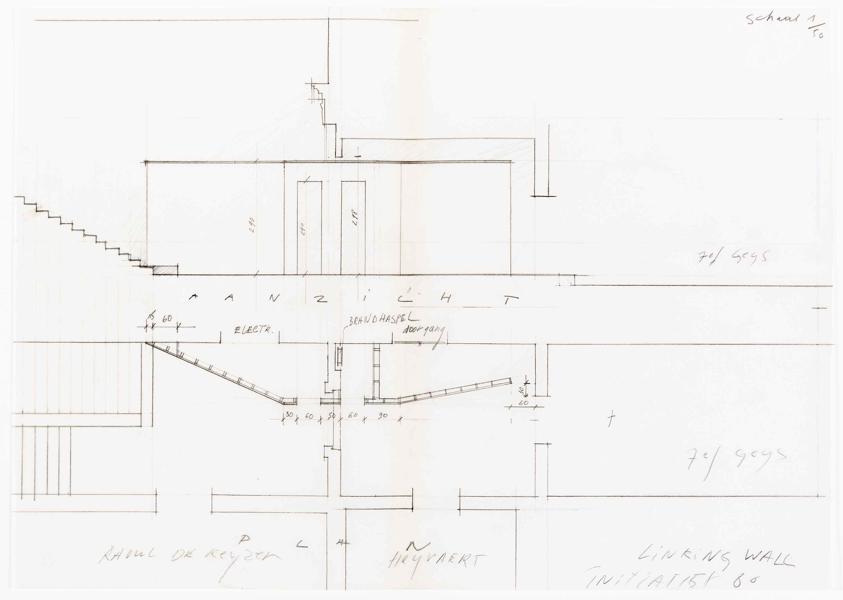 schaal 1/50
240
240
Jef Geys
AANZICHT
15 60
ELECTR.
BRANDHASPEL
doorgang
30 60 50 60 90
60
Jef Geys
PLAN
RAOUL DE KEYZER
HEYVAERT
LINKING WALL
INITIATIEF 86